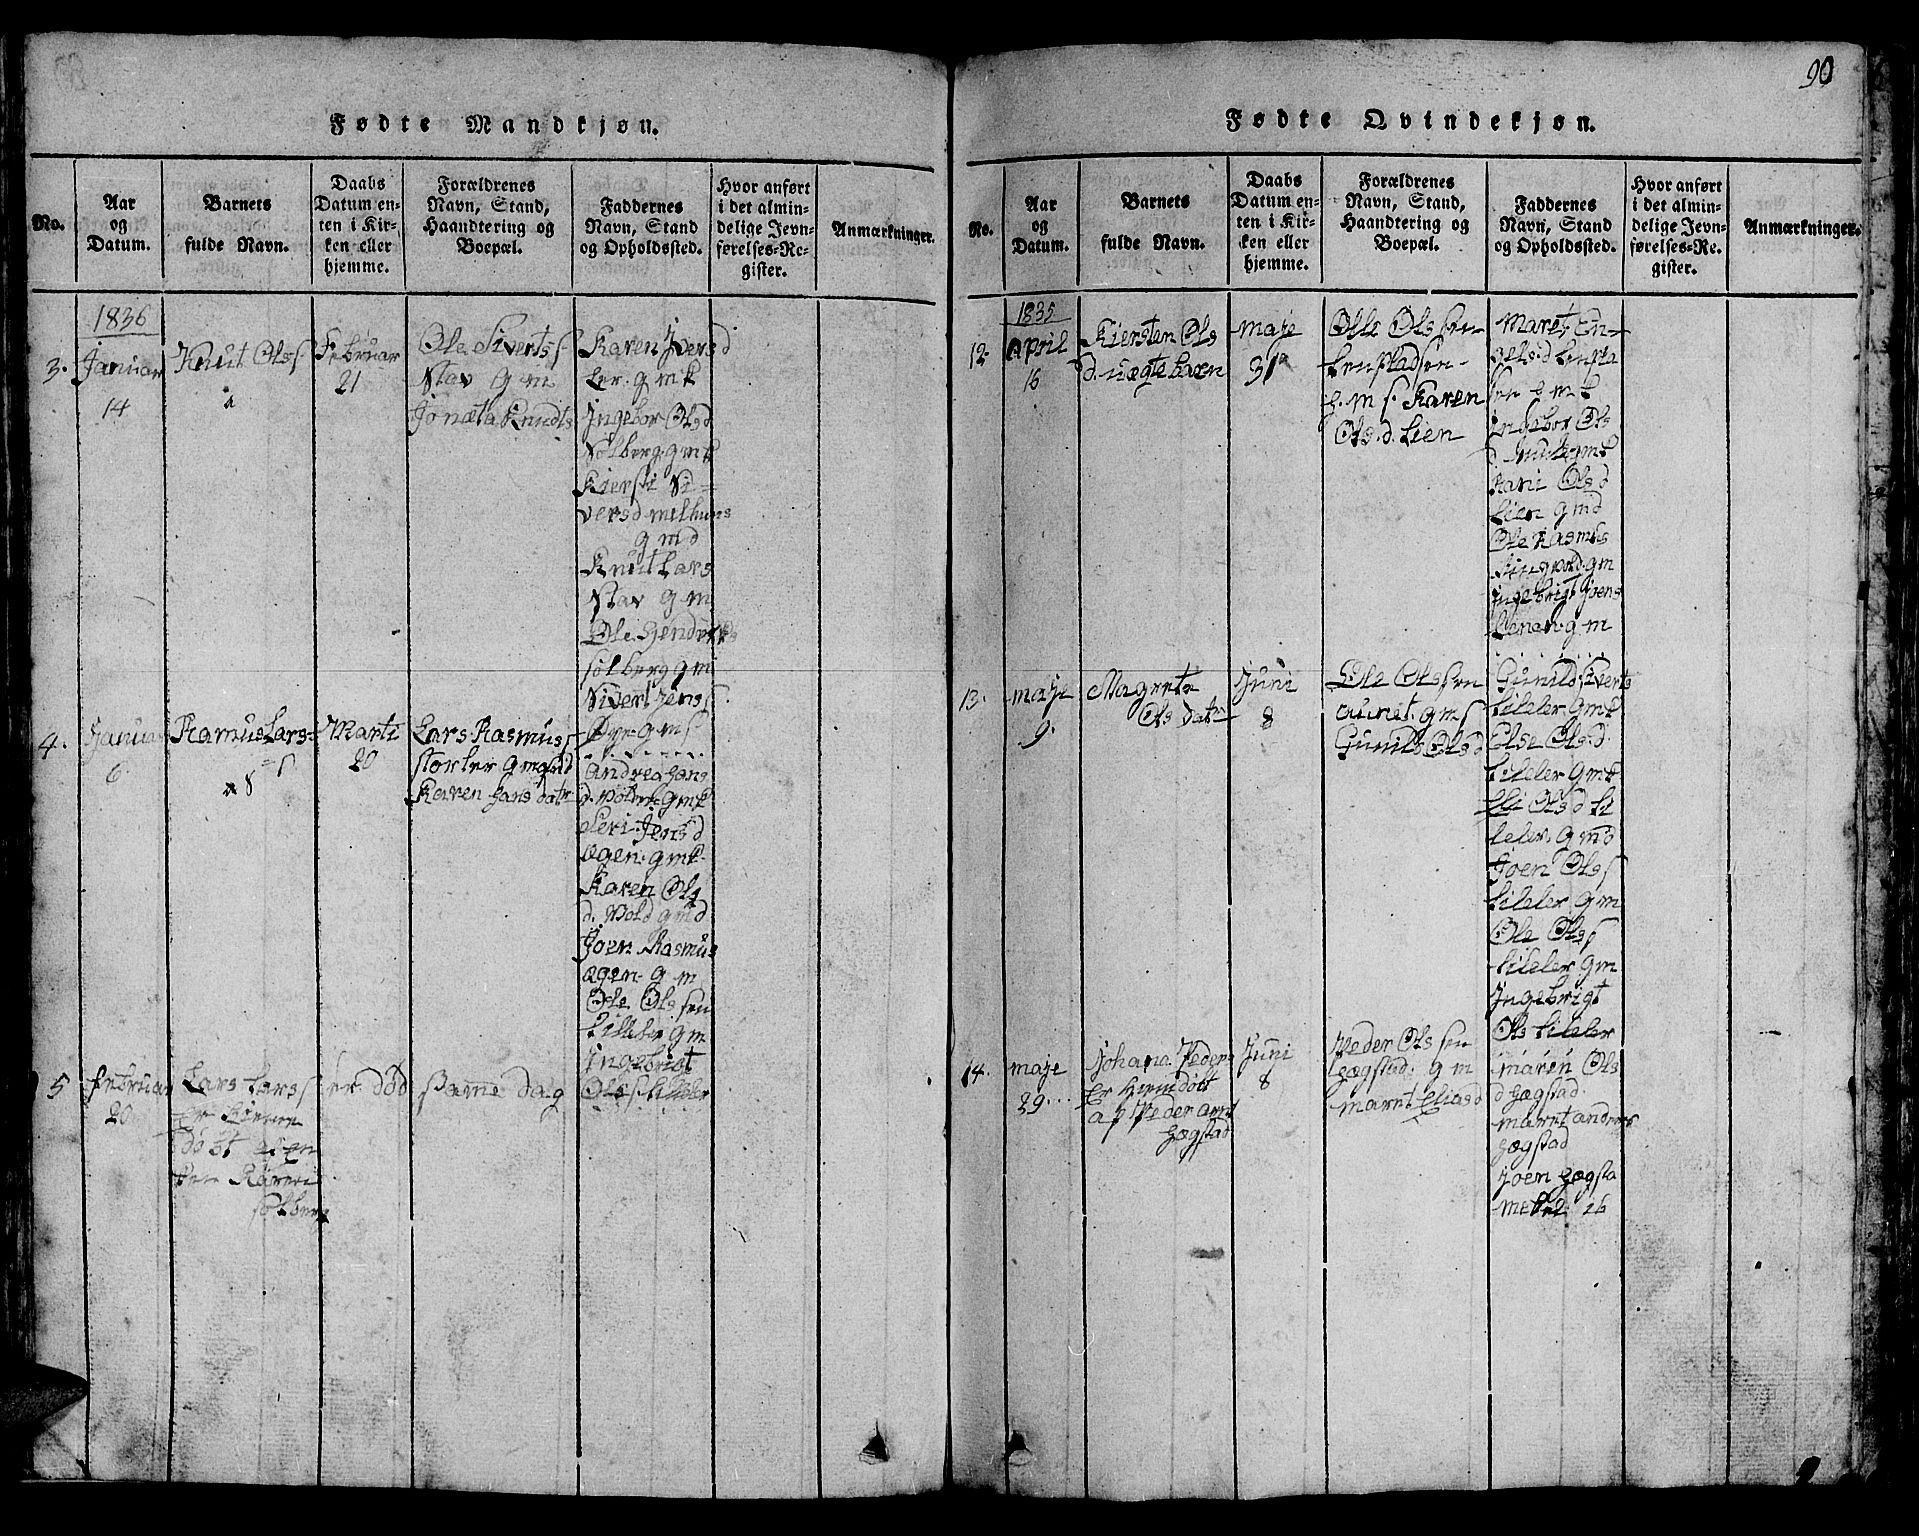 90
Fødte Mandkjøn.
No.
Aar
og
Datum.
Barnets
fulde Navn.
Daabs
Datum en-
ten i Kir-
ken eller
hjemme.
Forældrenes
Navn, Stand,
Haandtering og
Boepæl.
Faddernes
Navn, Stand
og Opholdssted.
Hvor anført
i det almin-
delige Jevn-
førelses-Re-
gister.
Anmærkninger.
1836
3.
Januar
14
Knut Olss
Februar
21
Ole Siverts
Stav g m
Jonæta Knudts
Karen Iversd
Ler. g m k
Ingebor Olsd
Solberg. g m k
Kiersti Si-
versd melhuus
g m d
Knut Lars
Stav g m
Ole Hendrks
Solberg g m
Sivert Jens
Øyr. g m s
4.
Januar
6
Ramus Lars-
s
Marti
20
Lars Rasmuss
storler gmand
Karen Hans datr
Andrea Hans
d. Volden g m k
Seri Jensd
øgen. g m k
Karen Ols
d. Vold g m d
Joen Rasmus
øgen. g m
Ole Olssen
Lilleler g m
Ingebrigt
Olss Lilleler
5
Februar
20
Lars Larss
er
døbt af en
Solberg
er død
Same Dag
Fødte Qvindekjøn.
No.
Aar
og
Datum.
Barnets
fulde Navn.
Daabs
Datum en-
ten i Kir-
ken eller
hjemme.
Forældrenes
Navn, Stand,
Haandtering og
Boepæl.
Faddernes
Navn, Stand
og Opholdssted.
Hvor anført
i det almin-
delige Jevn-
førelses-Re-
gister.
Anmærkninger.
1835
12.
April
16
Kiersten Ols
d. uægte barn
maje
31
Ole Olssen
Lenpladsen
g. m s. Karen
Ols. d. Lien
Maret En-
gels. d Lenpla
sen g m k
Ingebor Ols
d. g m k
Kari Ols d
Lien g m d
Ole Rasmus
g m
Ingebrigt Joens
g m
13.
maje
9.
Magrete
Ols datr
Juni
8
Ole Olssen
aunet. g m s
Gunild Ols d
Gunild Siverts
Lileler g m k
Else Ols. d.
Lileler g m k
Eli Ols d Li
leler. g m d
Joen Olss
Lileler g m
Ole Olss
Lileler g m
Ingebrigt
Ols Lileler
14.
maje
29
Johana Peders
er hiemdøbt
af Peder Arnt
Hægstad
Juni
8
Peder Olssen
Hægstad. g m
marnt Eliasd
maren Ols
d Hægstad
marnt anders
Hægstad
Joen Hægsta